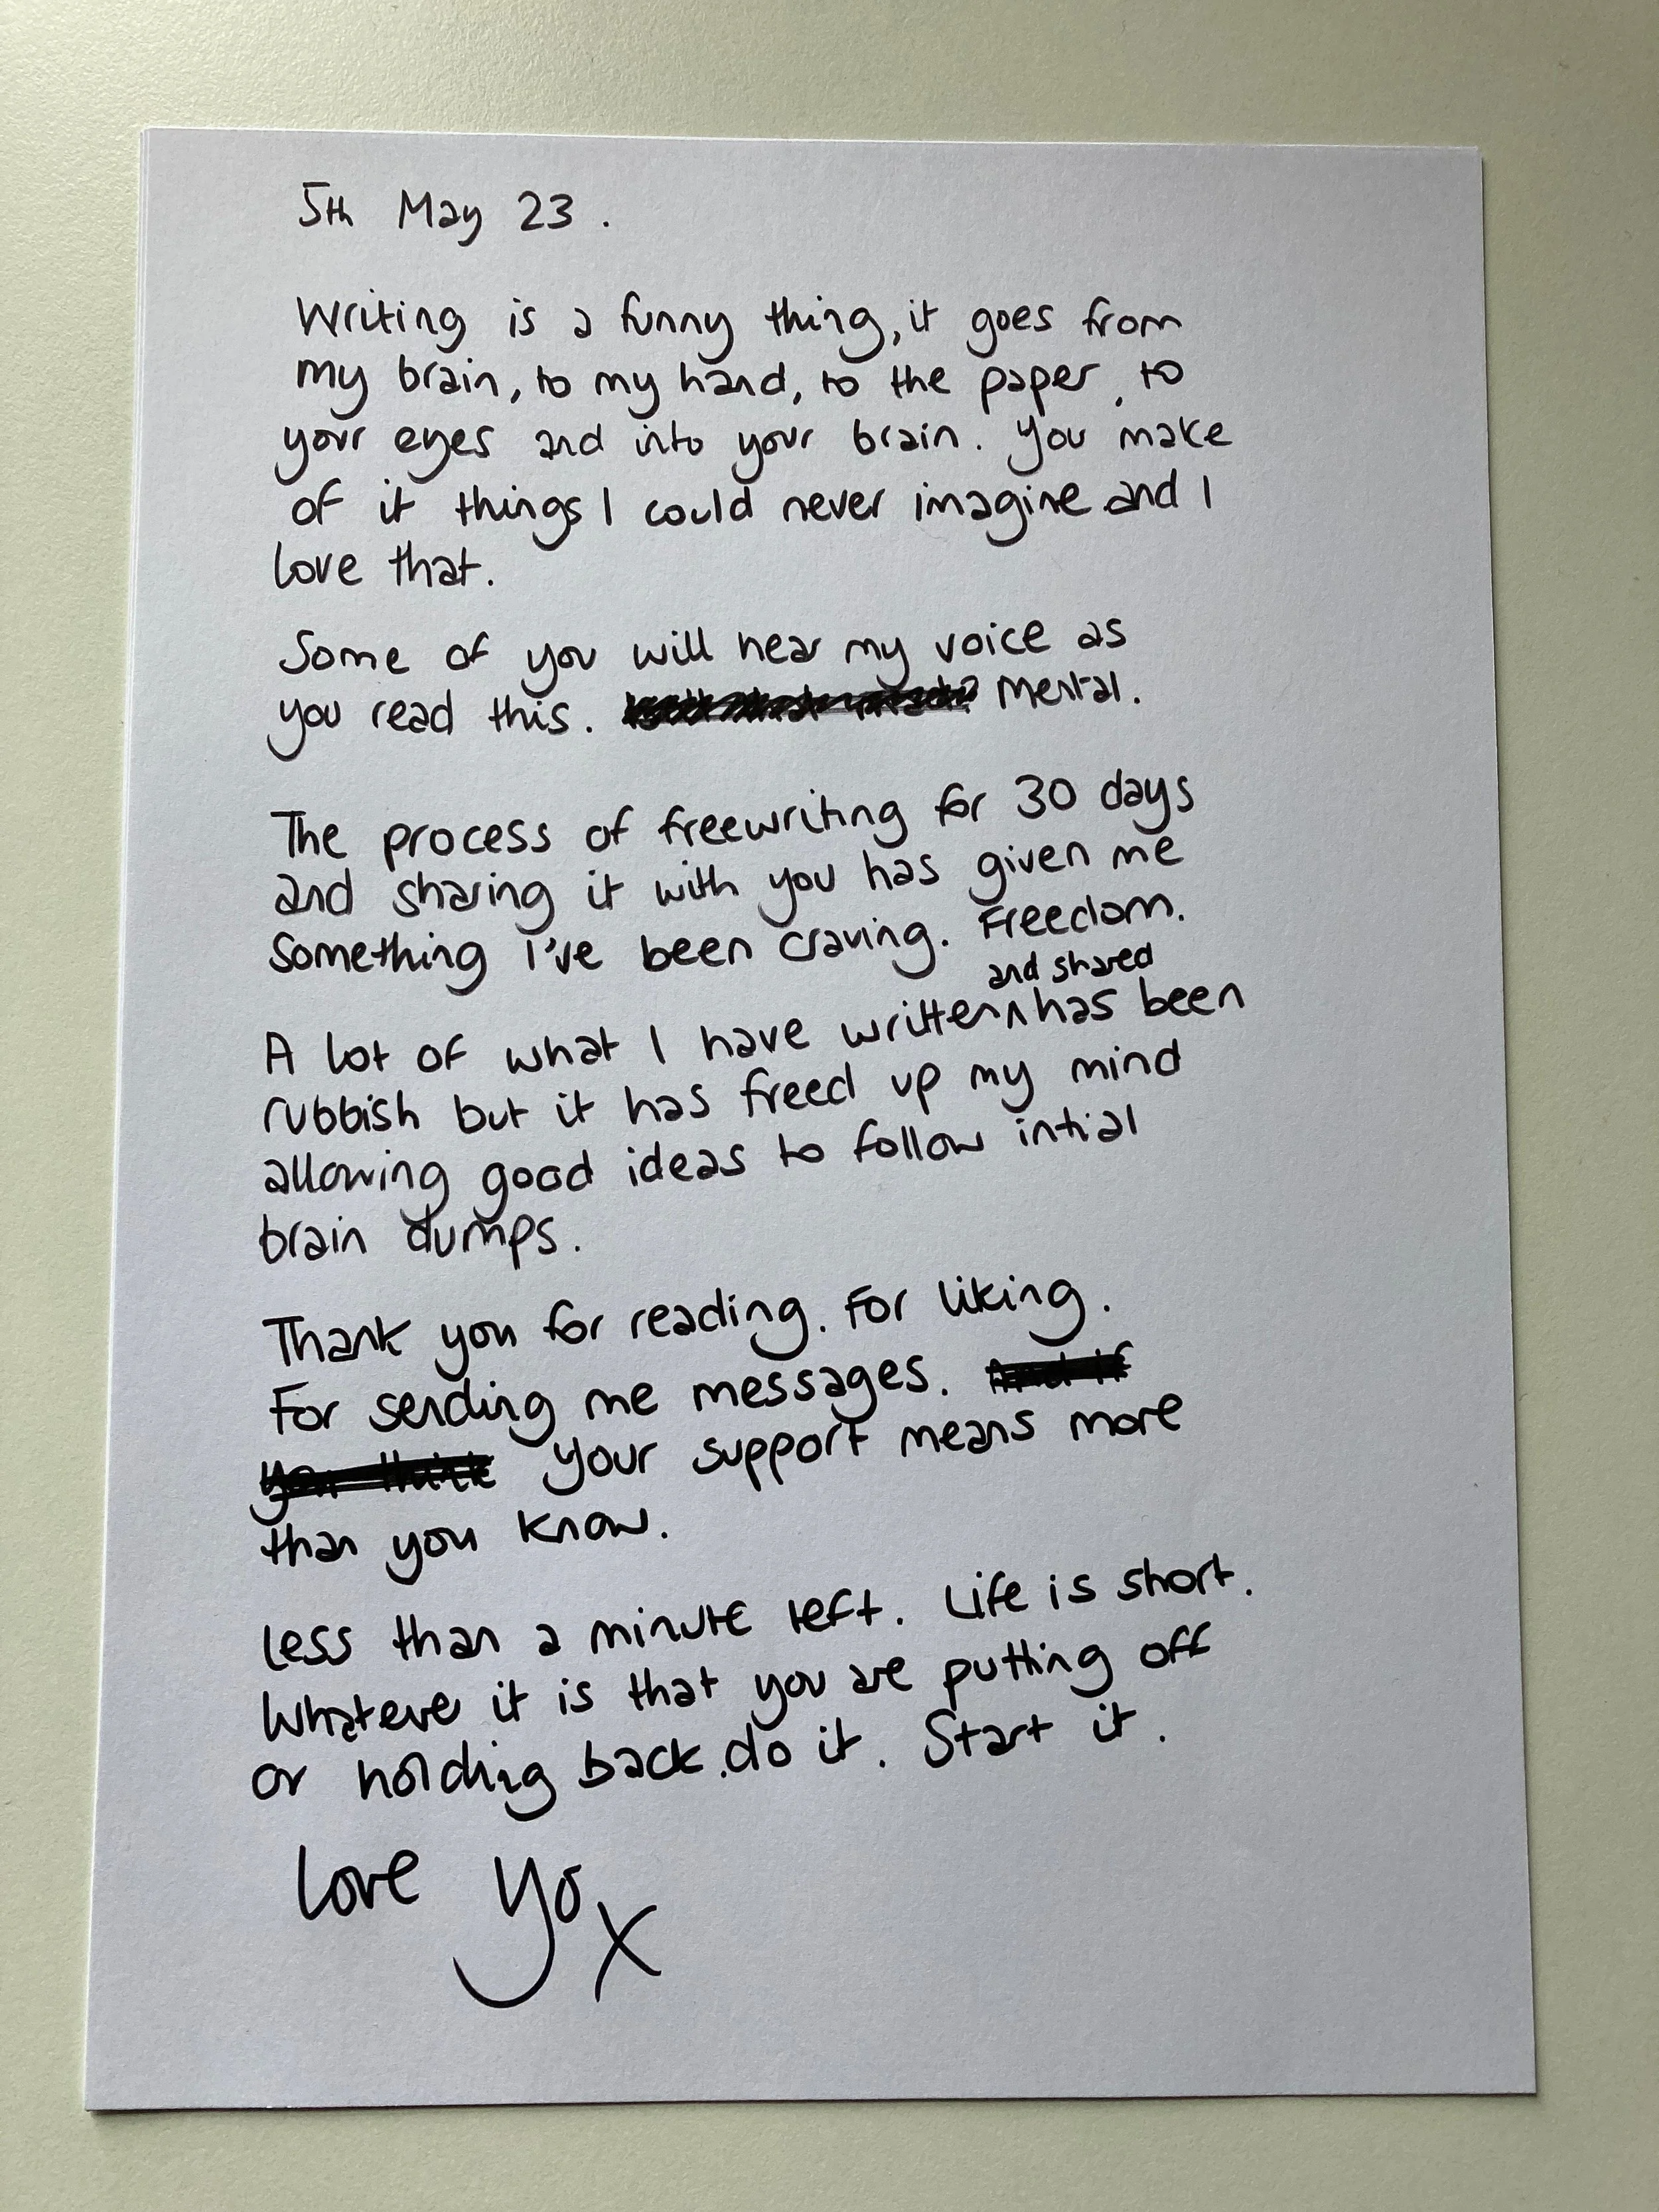 5th May 23.
Writing is a funny thing, it goes from
my brain, to my hand, to the paper, to
your eyes and into your brain. You make
of it things I could never imagine and I
love that.
Some of you will hear my voice as
you read this. Mental.
The process of freewriting for 30 days
and sharing it with you has given me
something I've been craving. Freedom.
and shared
A lot of what I have written^has been
rubbish but it has freed up my mind
allowing good ideas to follow intial
brain dumps.
Thank you for reading. For liking.
For sending me messages. And if
you think your support means more
than you know.
Less than a minute left. Life is short.
Whateve it is that you are putting off
or holding back, do it. Start it.
Love Yo x